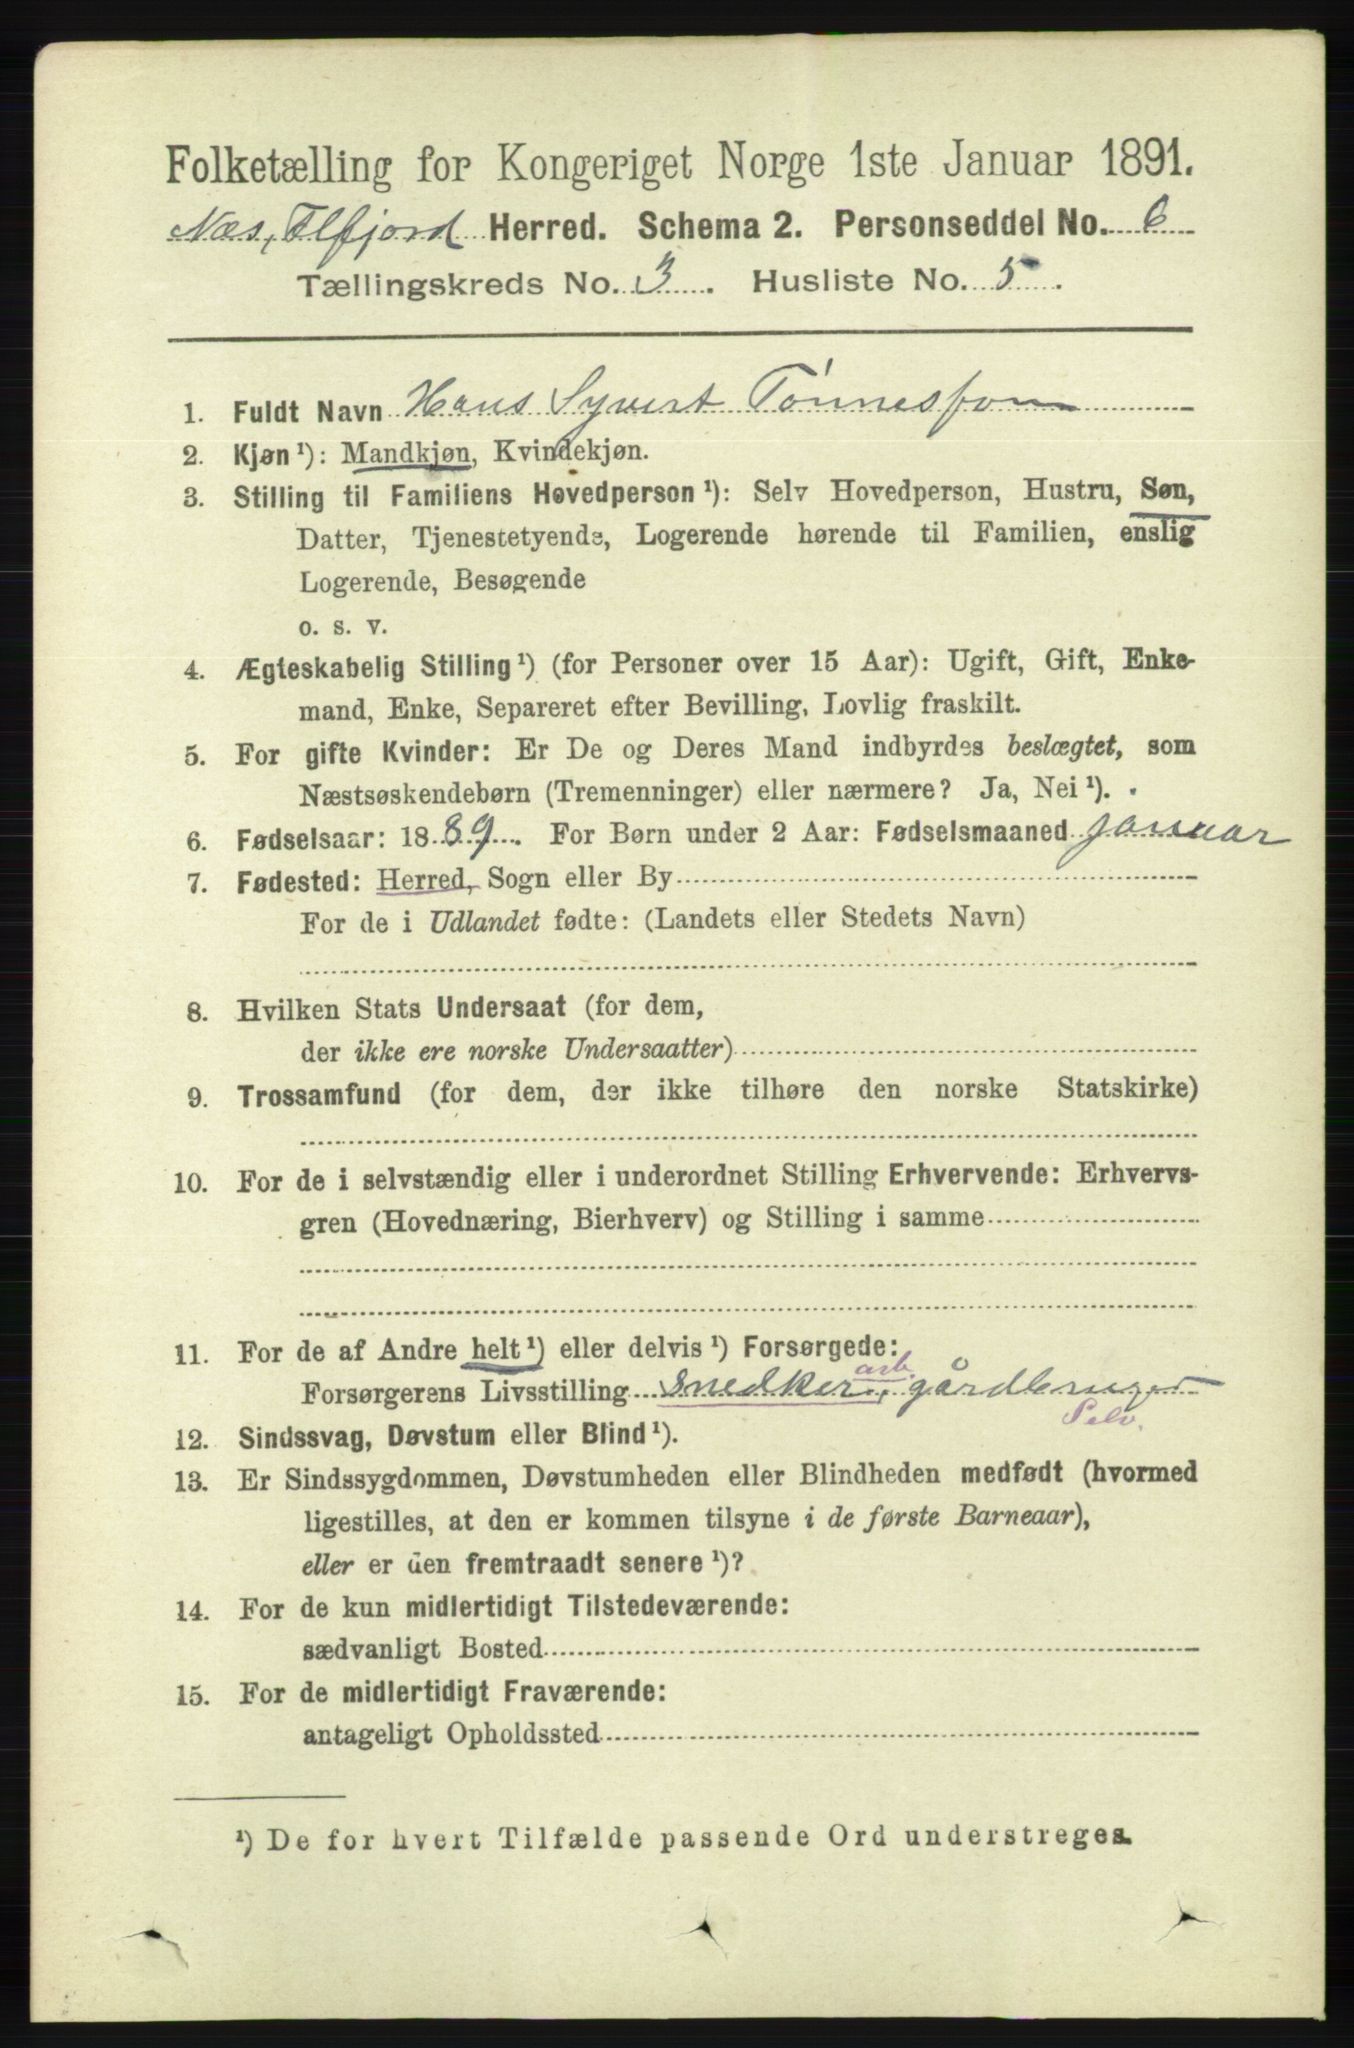 Folketælling for Kongeriget Norge 1ste Januar 1891.
Næs, Flfjord Herred. Schema 2. Personseddel No. 6
Tællingskreds No. 3. Husliste No. 5.
1. Fuldt Navn Hans Syvert Tønnesson
2. Kjøn ¹): Mandkjøn, Kvindekjøn.
3. Stilling til Familiens Hovedperson ¹): Selv Hovedperson, Hustru, Søn,
Datter, Tjenestetyende, Logerende hørende til Familien, enslig
Logerende, Besøgende
o. s. v.
4. Ægteskabelig Stilling ¹) (for Personer over 15 Aar): Ugift, Gift, Enke-
mand, Enke, Separeret efter Bevilling, Lovlig fraskilt.
5. For gifte Kvinder: Er De og Deres Mand indbyrdes beslægtet, som
Næstsøskendebørn (Tremenninger) eller nærmere? Ja, Nei ¹).
6. Fødselsaar: 1889. For Børn under 2 Aar: Fødselsmaaned Januar
7. Fødested: Herred, Sogn eller By
For de i Udlandet fødte: (Landets eller Stedets Navn)
8. Hvilken Stats Undersaat (for dem,
der ikke ere norske Undersaatter)
9. Trossamfund (for dem, der ikke tilhøre den norske Statskirke)
10. For de i selvstændig eller i underordnet Stilling Erhvervende: Erhvervs-
gren (Hovednæring, Bierhverv) og Stilling i samme
11. For de af Andre helt ¹) eller delvis ¹) Forsørgede:
arb.
Forsørgerens Livsstilling snedker, gårdbruger
Selv.
12. Sindssvag, Døvstum eller Blind ¹).
13. Er Sindssygdommen, Døvstumheden eller Blindheden medfødt (hvormed
ligestilles, at den er kommen tilsyne i de første Barneaar),
eller er den fremtraadt senere ¹)?
14. For de kun midlertidigt Tilstedeværende:
sædvanligt Bosted
15. For de midlertidigt Fraværende:
antageligt Opholdssted
¹) De for hvert Tilfælde passende Ord understreges.